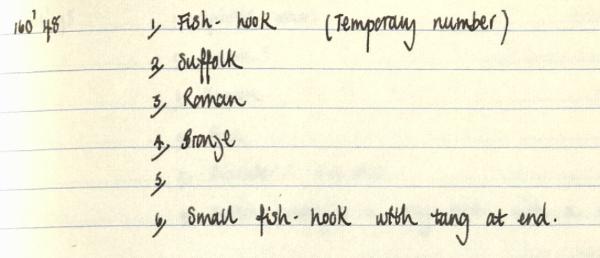 160' 48 1, Fish-hook (Temporary number)
2, Suffolk
3, Roman
4, Bronze
5,
6, Small fish-hook with tang at end.